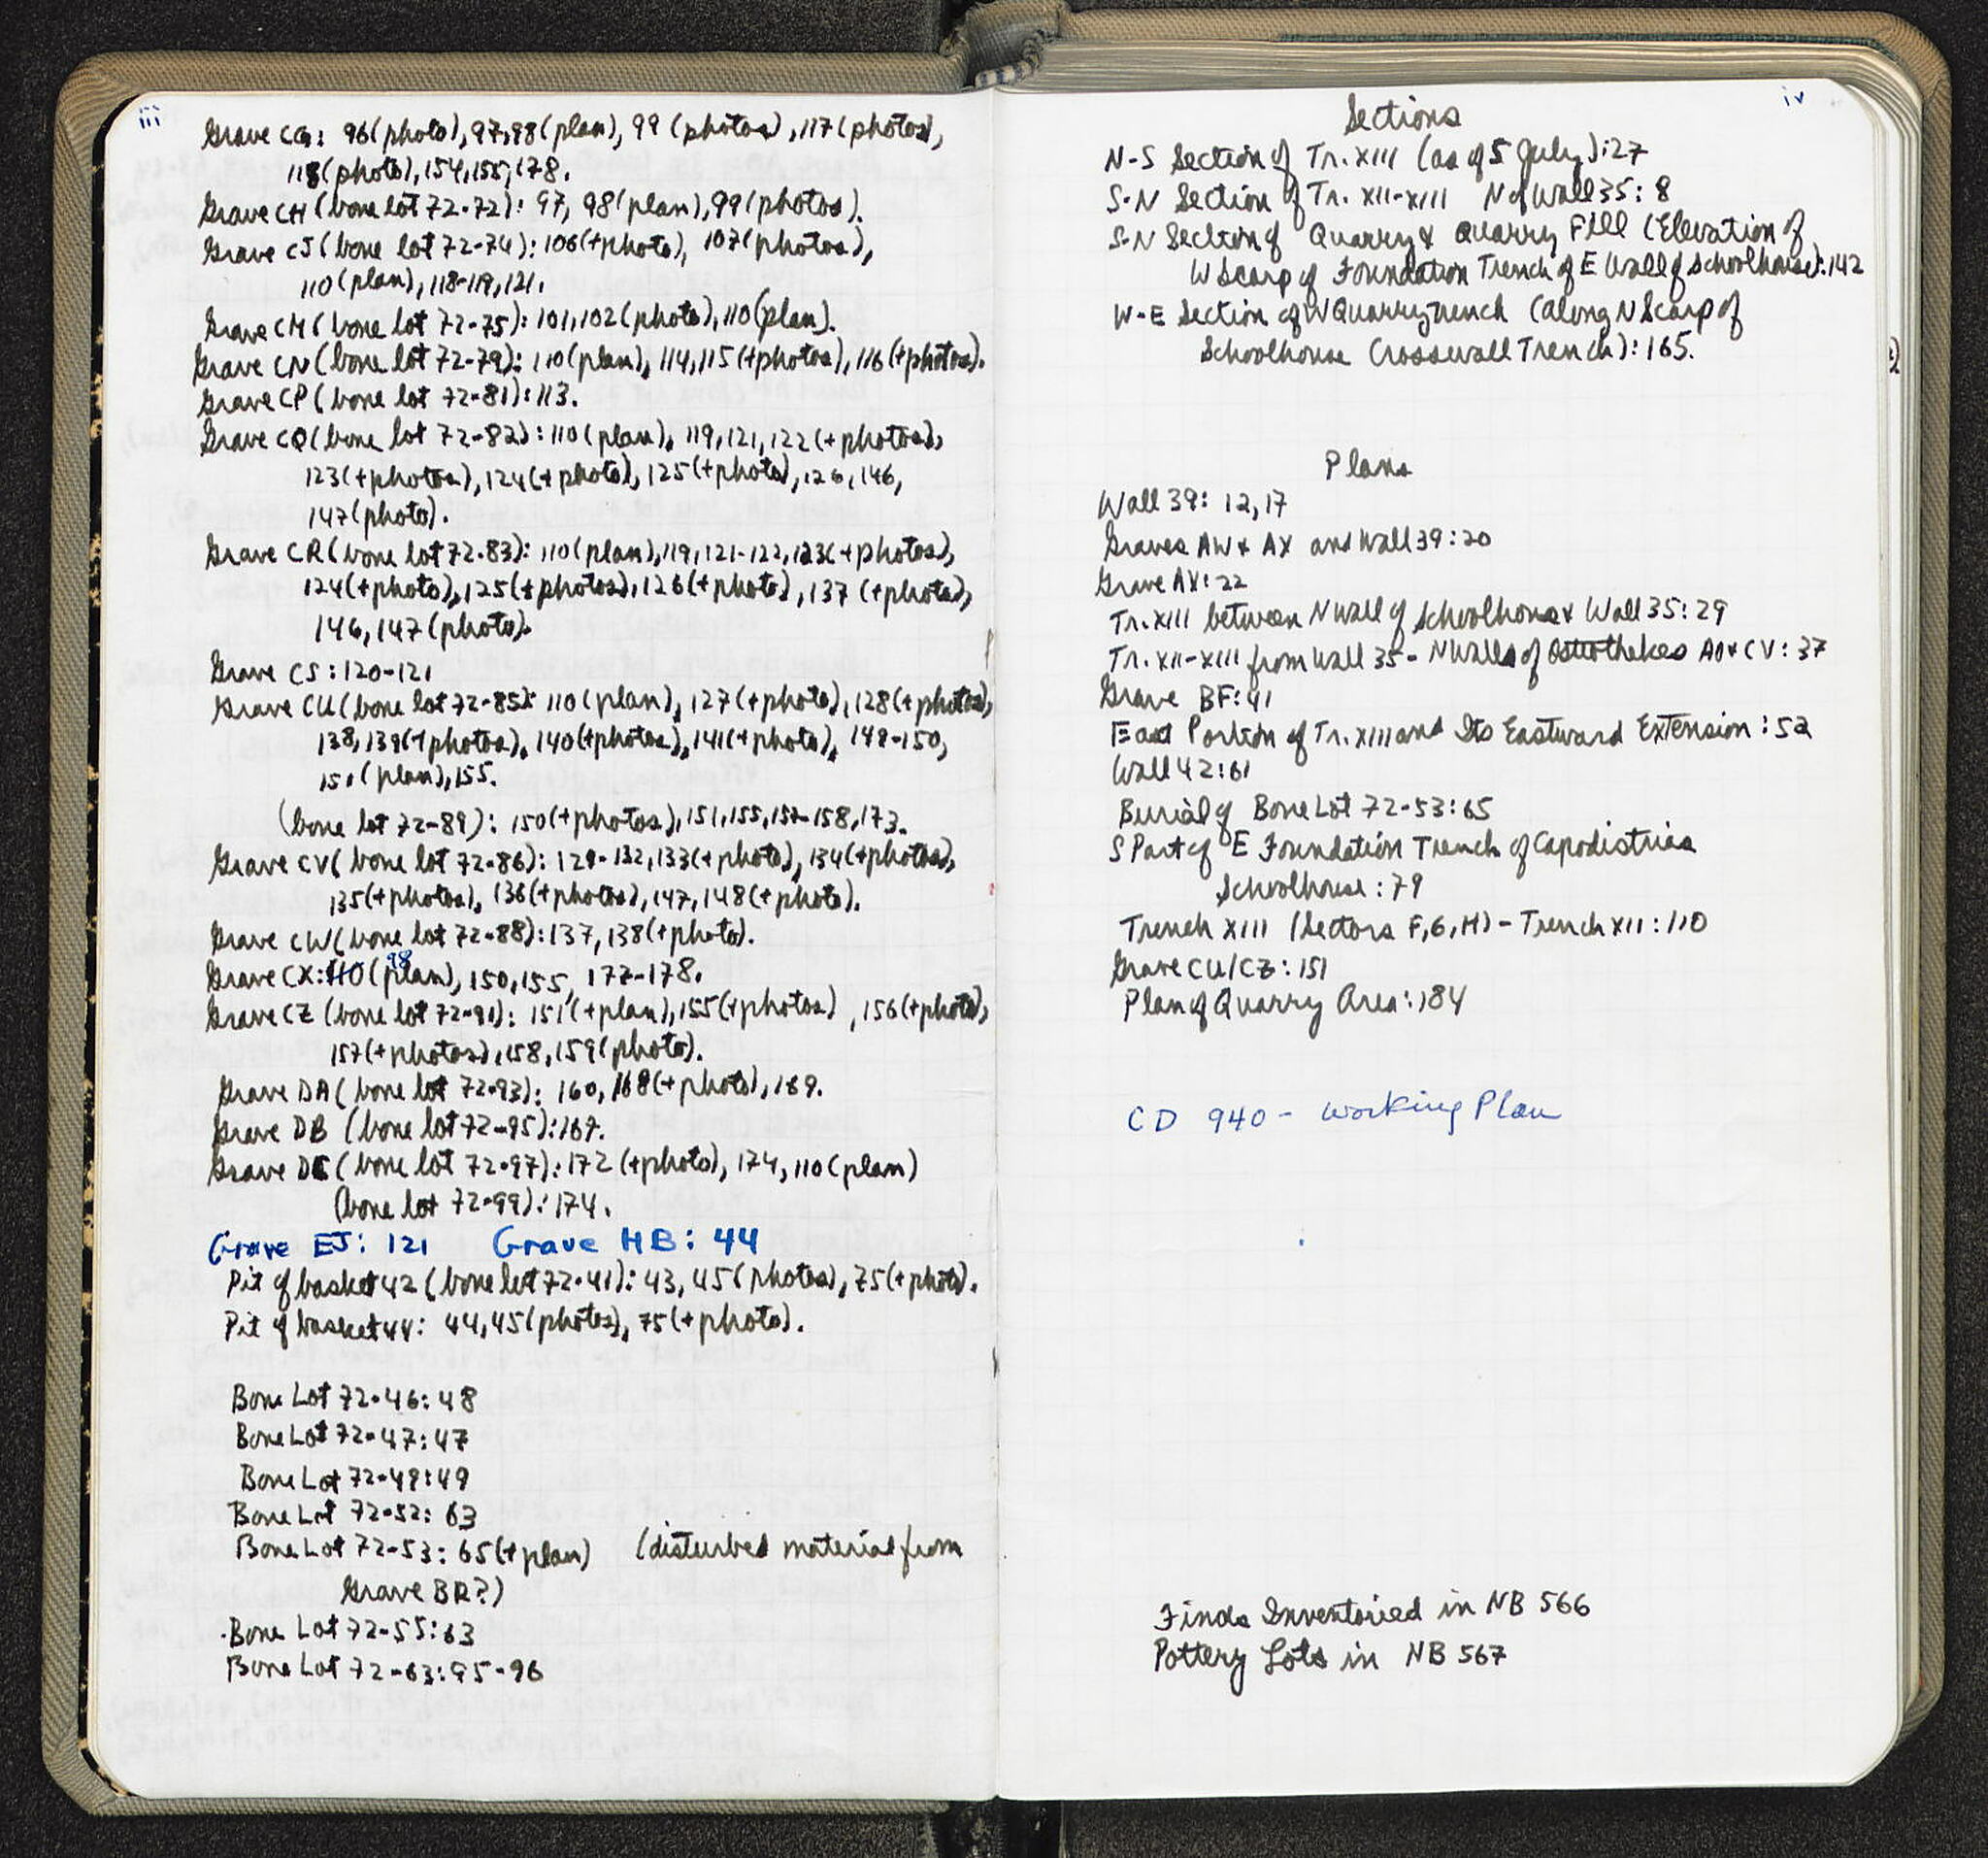 iii
Grave CG: 96(photo), 97, 98(plan), 99 (photos), 117(photos),
118(photo), 154, 155, 178.
Grave CH (bone lot 72-72): 97, 98(plan), 99(photos).
Grave CJ (bone lot 72-74): 106(+photo), 107(photos),
110(plan), 118-119, 121.
Grave CM (bone lot 72-75): 101, 102(photo), 110(plan).
Grave CN (bone lot 72-79): 110(plan), 114, 115(+photos), 116(+photos).
Grave CP (bone lot 72-81): 113.
Grave CQ (bone lot 72-82): 110(plan), 119, 121, 122(+photos),
123(+photos), 124(+photo), 125(+photo), 126, 146,
147(photo).
Grave CR (bone lot 72-83): 110(plan), 119, 121-122, 123(+photos),
124(+photo), 125(+photos), 126(+photo), 137 (+photo),
146, 147(photo).
Grave CS: 120-121
Grave CU (bone lot 72-85): 110(plan), 127(+photo), 128(+photos),
138, 139(+photos), 140(+photos), 141(+photo), 149-150,
151(plan), 155.
(bone lot 72-89): 150(+photos), 151, 155, 157-158, 173.
Grave CV (bone lot 72-86): 129-132, 133(+photo), 134(+photos),
135(+photos), 136(+photos), 147, 148(+photo).
Grave CW (bone lot 72-88): 137, 138(+photo).
Grave CX: 110 98 (plan), 150, 155, 177-178.
Grave CZ (bone lot 72-91): 151(+plan), 155(+photos), 156(+photo),
157(+photos), 158, 159(photo).
Grave DA (bone lot 72-93): 160, 168(+photo), 169.
Grave DB (bone lot 72-95): 169.
Grave DC (bone lot 72-97): 172 (+photo), 174, 110(plan)
(bone lot 72-99): 174.
Grave EJ: 121 Grave HB: 44
Pit of basket 42 (bone lot 72-41): 43, 45(photos), 75(+photo).
Pit of basket 44: 44, 45(photos), 75(+photo).
Bone Lot 72-46: 48
Bone Lot 72-47: 47
Bone Lot 72-49: 49
Bone Lot 72-52: 63
Bone Lot 72-53: 65(+plan) (disturbed material from
Grave BR?)
Bone Lot 72-55: 63
Bone Lot 72-63: 95-96
iv
Sections
N-S Section of Tr. XIII (as of 5 July): 27
S-N Section of Tr. XII-XIII N of Wall 35: 8
S-N Section of Quarry & Quarry Fill (Elevation of
W Scarp of Foundation Trench of E Wall of Schoolhouse): 142
W-E Section of W Quarry Trench (along N Scarp of
Schoolhouse Crosswall Trench): 165.
Plans
Wall 39: 12, 17
Graves AW & AX and Wall 39: 20
Grave AX: 22
Tr. XIII between N Wall of Schoolhouse & Wall 35: 29
Tr. XII-XIII from Wall 35 - N Walls of Osteothekes AO & CV: 37
Grave BF: 41
East Portion of Tr. XIII and Its Eastward Extension: 52
Wall 42: 61
Burial of Bone Lot 72-53: 65
S Part of E Foundation Trench of Capodistrias
Schoolhouse: 79
Trench XIII (Sectors F, G, H) - Trench XII: 110
Grave CU/CZ: 151
Plan of Quarry Area: 184
CD 940 - Working Plan
Finds Inventoried in NB 566
Pottery Lots in NB 567